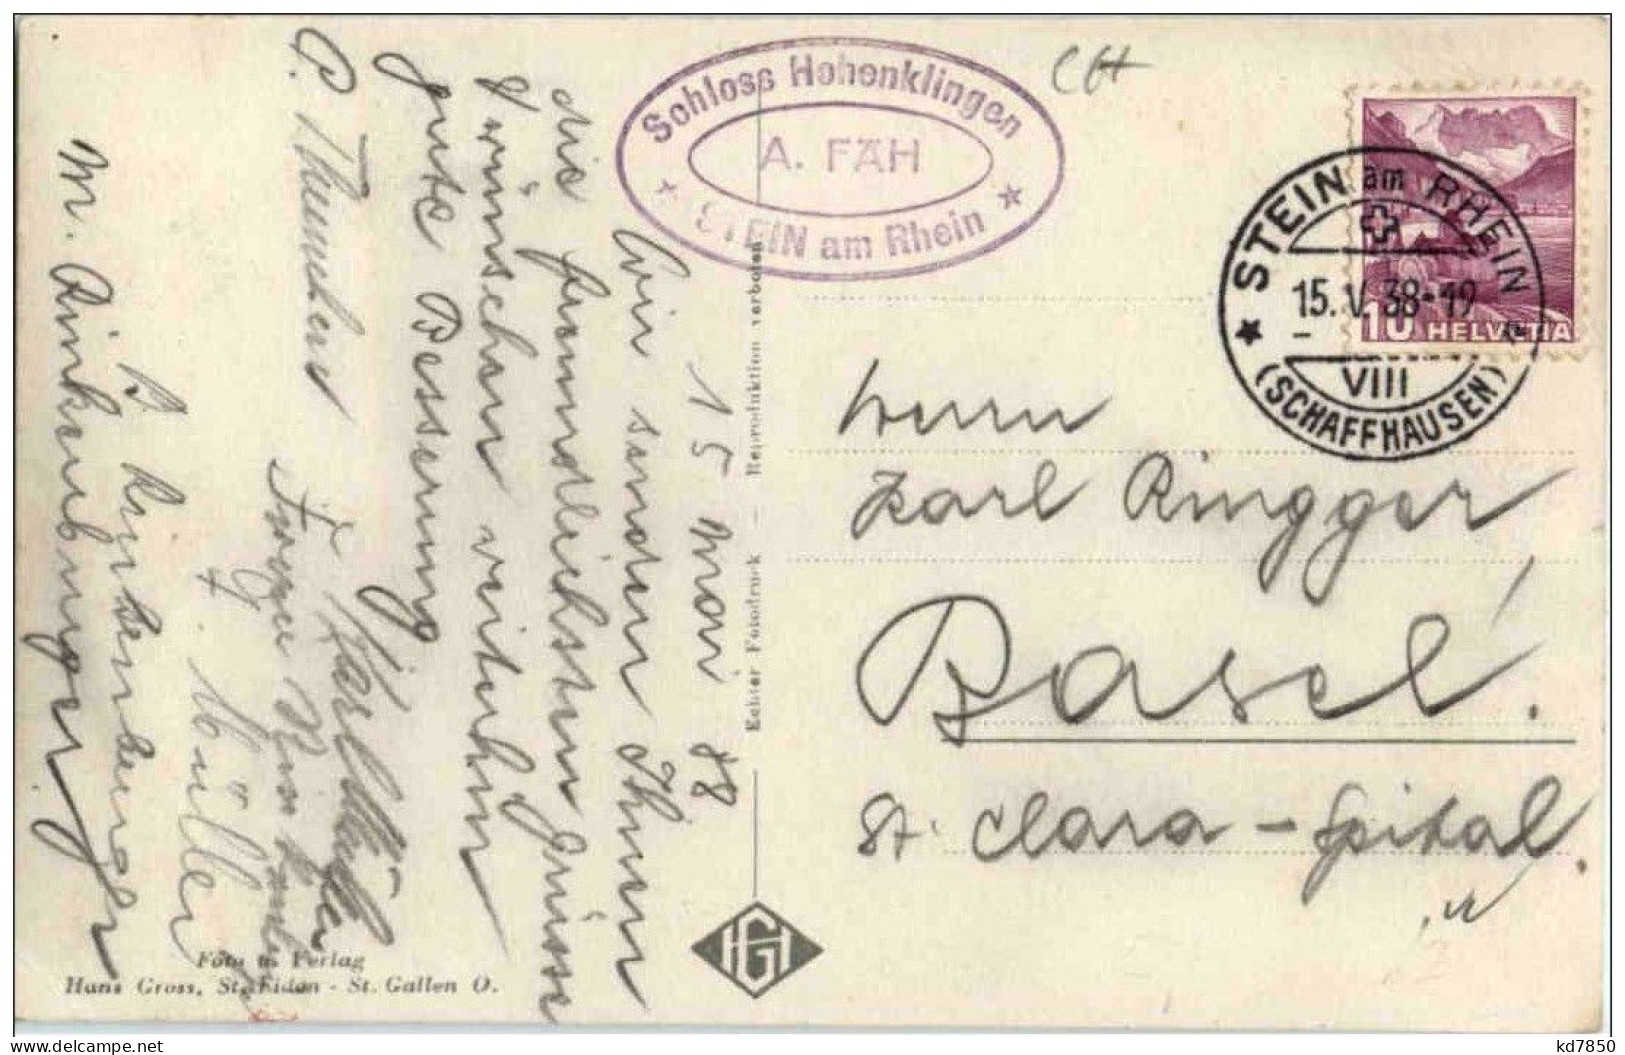 Schloss Hohenklingen
A. FÄH
STEIN am Rhein
CH
HELVETIA
10
STEIN am RHEIN
15.V.38-19
VIII
(SCHAFFHAUSEN)
15 Mai 38
Wir senden Ihnen
die freundlichsten Grüsse
& wünschen weiterhin
gute Besserung
Karl Müller
G. Müller
M. Rinkenburger
Herrn
Karl Ringger
Basel!
St. Clara-Spital.
Echter Fotodruck – Reproduktion verboten
HG
Foto u. Verlag
Hans Gross, St. Fiden - St. Gallen O.
delcampe.net
kd7850